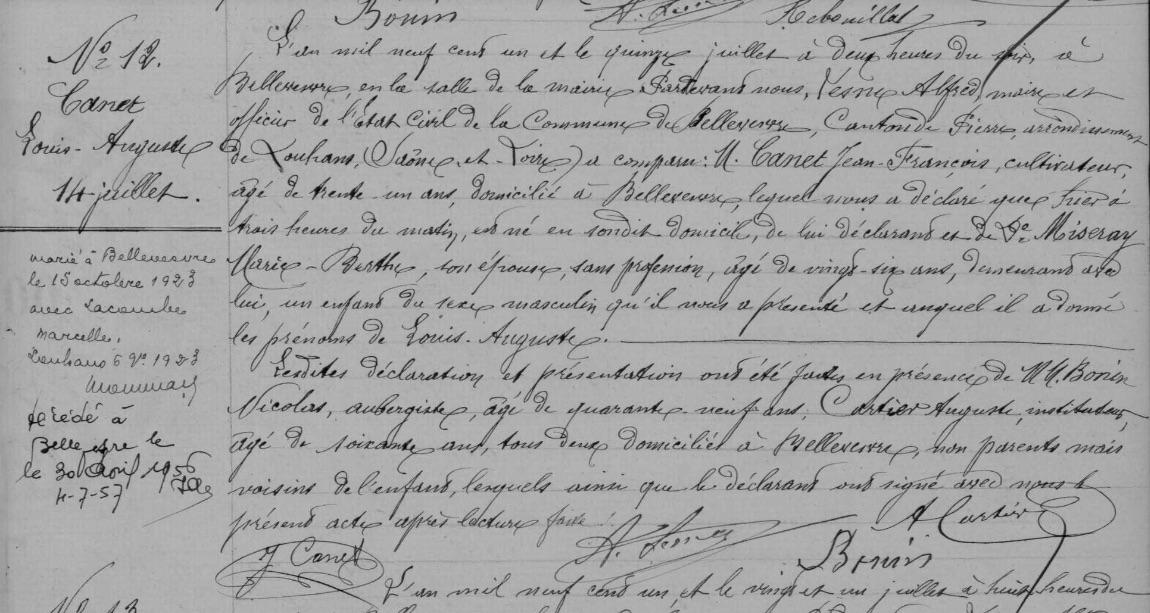 Bonin Rebouillat
Nº 12.
Canet
Louis-Auguste
14 juillet.
marié à Bellevesvre
le 15 octobre 1923
avec Lacombe
Marcelle.
Louhans 6 9re 1923
décédé à
Bellevesvre le
le 30 Avril 1956
4-7-57
L'an mil neuf cent un et le quinze juillet à deux heures du soir, à
Bellevesvre, en la salle de la mairie Pardevant nous, Vesne Alfred, maire et
officier de l'Etat Civil de la Commune de Bellevesvre, Canton de Pierre, arrondissement
de Louhans, (Saône-et-Loire) a comparu: M. Canet Jean-François, cultivateur,
âgé de trente-un ans, domicilié à Bellevesvre, lequel nous a déclaré que hier à
trois heures du matin, est né en sondit domicile, de lui déclarant et de De Miseray
Marie-Berthe, son épouse, sans profession, âgé de vingt-six ans, demeurant avec
lui, un enfant du sexe masculin qu'il nous a présenté et auquel il a donné
les prénoms de Louis-Auguste.
Lesdites déclaration et présentation ont été faites en présence de MM. Bonin
Nicolas, aubergiste, âgé de quarante-neuf ans, Cartier Auguste, instituteur,
âgé de soixante ans, tous deux domiciliés à Bellevesvre, non parents mais
voisins de l'enfant, lesquels ainsi que le déclarant ont signé avec nous le
présent acte après lecture faite.
A Cartier
J Canet Bonin
L'an mil neuf cent un, et le vingt et un juillet à huit heures du
Nº 13.